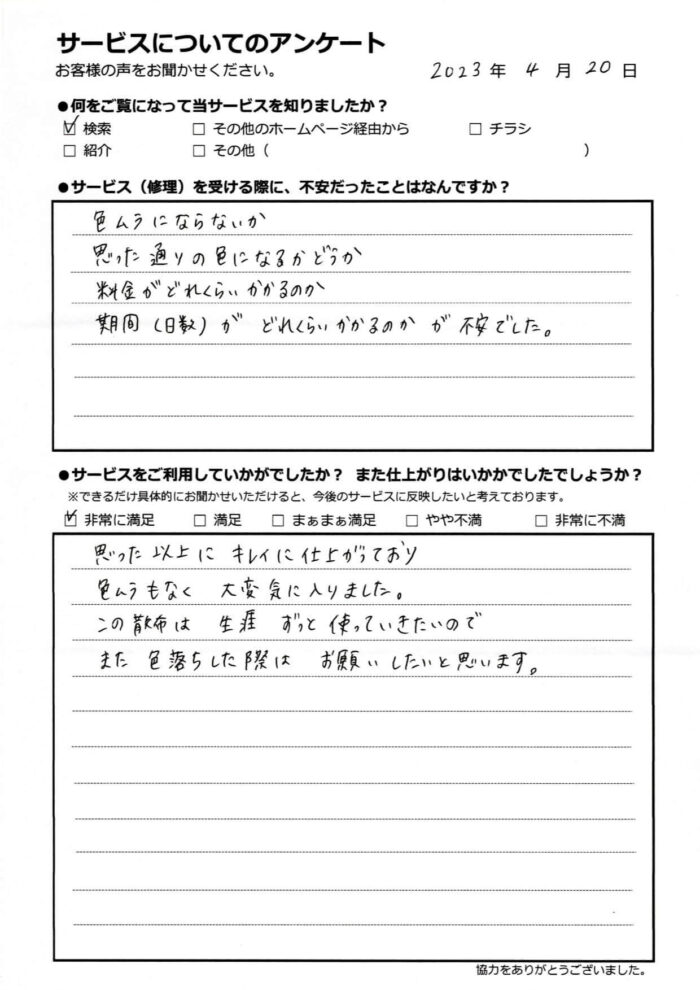 サービスについてのアンケート
お客様の声をお聞かせください。
2023 年 4 月 20 日
●何をご覧になって当サービスを知りましたか？
☑ 検索 □ その他のホームページ経由から □ チラシ
□ 紹介 □ その他（ ）
●サービス（修理）を受ける際に、不安だったことはなんですか？
色ムラにならないか
思った通りの色になるかどうか
料金がどれくらいかかるのか
期間（日数）が どれくらいかかるのか が 不安でした。
●サービスをご利用していかがでしたか？ また仕上がりはいかかでしたでしょうか？
※できるだけ具体的にお聞かせいただけると、今後のサービスに反映したいと考えております。
☑ 非常に満足 □ 満足 □ まぁまぁ満足 □ やや不満 □ 非常に不満
思った以上に キレイに仕上がっており
色ムラもなく 大変気に入りました。
この散布は 生涯 ずっと使っていきたいので
また 色落ちした際は お願いしたいと思います。
協力をありがとうございました。